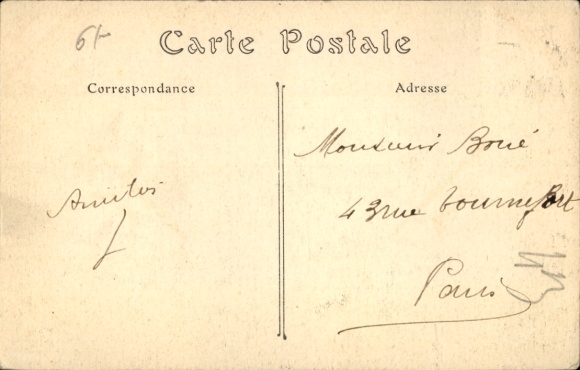 61-
Carte Postale
Correspondance
Adresse
Amitiés
Monsieur Boué
43 rue tournefort
Paris